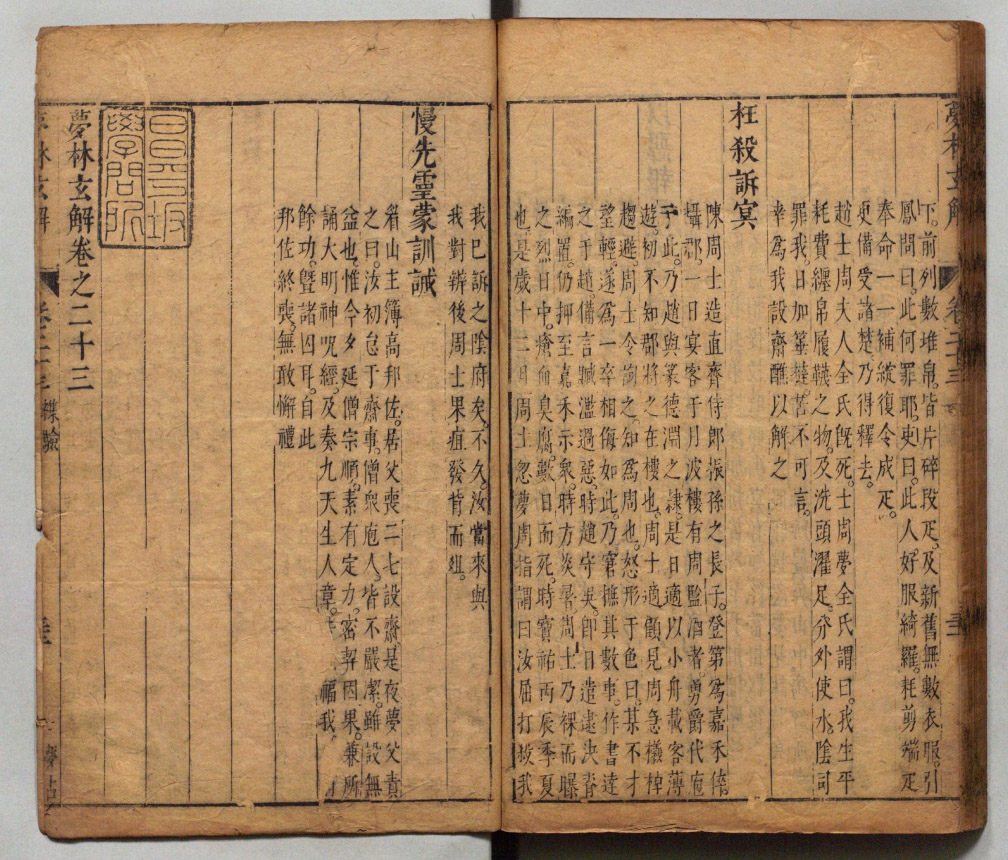 下前列數堆帛皆片碎段疋及新舊無數衣服引
鳳問曰此何罪耶吏曰此人好服綺羅耗剪端疋
奉命一一補縱復令成疋
更備受諸楚乃得釋去
趙士周大人全氏旣死士周夢全氏謂曰我生平
耗費纏帛履韈之物及洗頭濯足分外使水陰司
罪我日加箠撻苦不可言
幸爲我設齋醮以解之
枉殺訴冥
陳周士造直齊侍郎振孫之長子登第爲嘉禾倅
攝郡一日宴客于月波樓有周監酒者勇爵代庖
于此乃趙與𥲅德淵之隷是日適以小舟載客薄
遊初不知郡將之在樓也周士適顧見周急艤棹
趨避周士令詢之知爲周也怒形于色曰某不才
望輕遂爲一卒相侮如此乃窘撫其數事作書達
之于趙備言贓濫過惡時趙守吳卽日遣逮决脊
編置仍押至嘉禾示衆時方炎暑周士乃裸而曝
之烈日中瘡血臭腐數日而死時寶祐丙辰季夏
也是歲十二月周士忽夢周指謂曰汝屈打殺我
我已訴之陰府矣不久汝當來與
我對辨後周士果疽發背而殂
慢先靈蒙訓誡
眉山主簿高邦佐居父喪二七設齋是夜夢父責
之曰汝初怠于齋事僧衆庖人皆不嚴潔雖設無
益也惟今夕延僧宗順素有定力密契因果兼所
誦大明神呪經及奏九天生人章 福我
餘功曁諸囚耳自此
邦佐終喪無敢懈禮
昌平坂
學問所
夢林玄解卷之二十三
夢林玄解
卷二十三
夢占